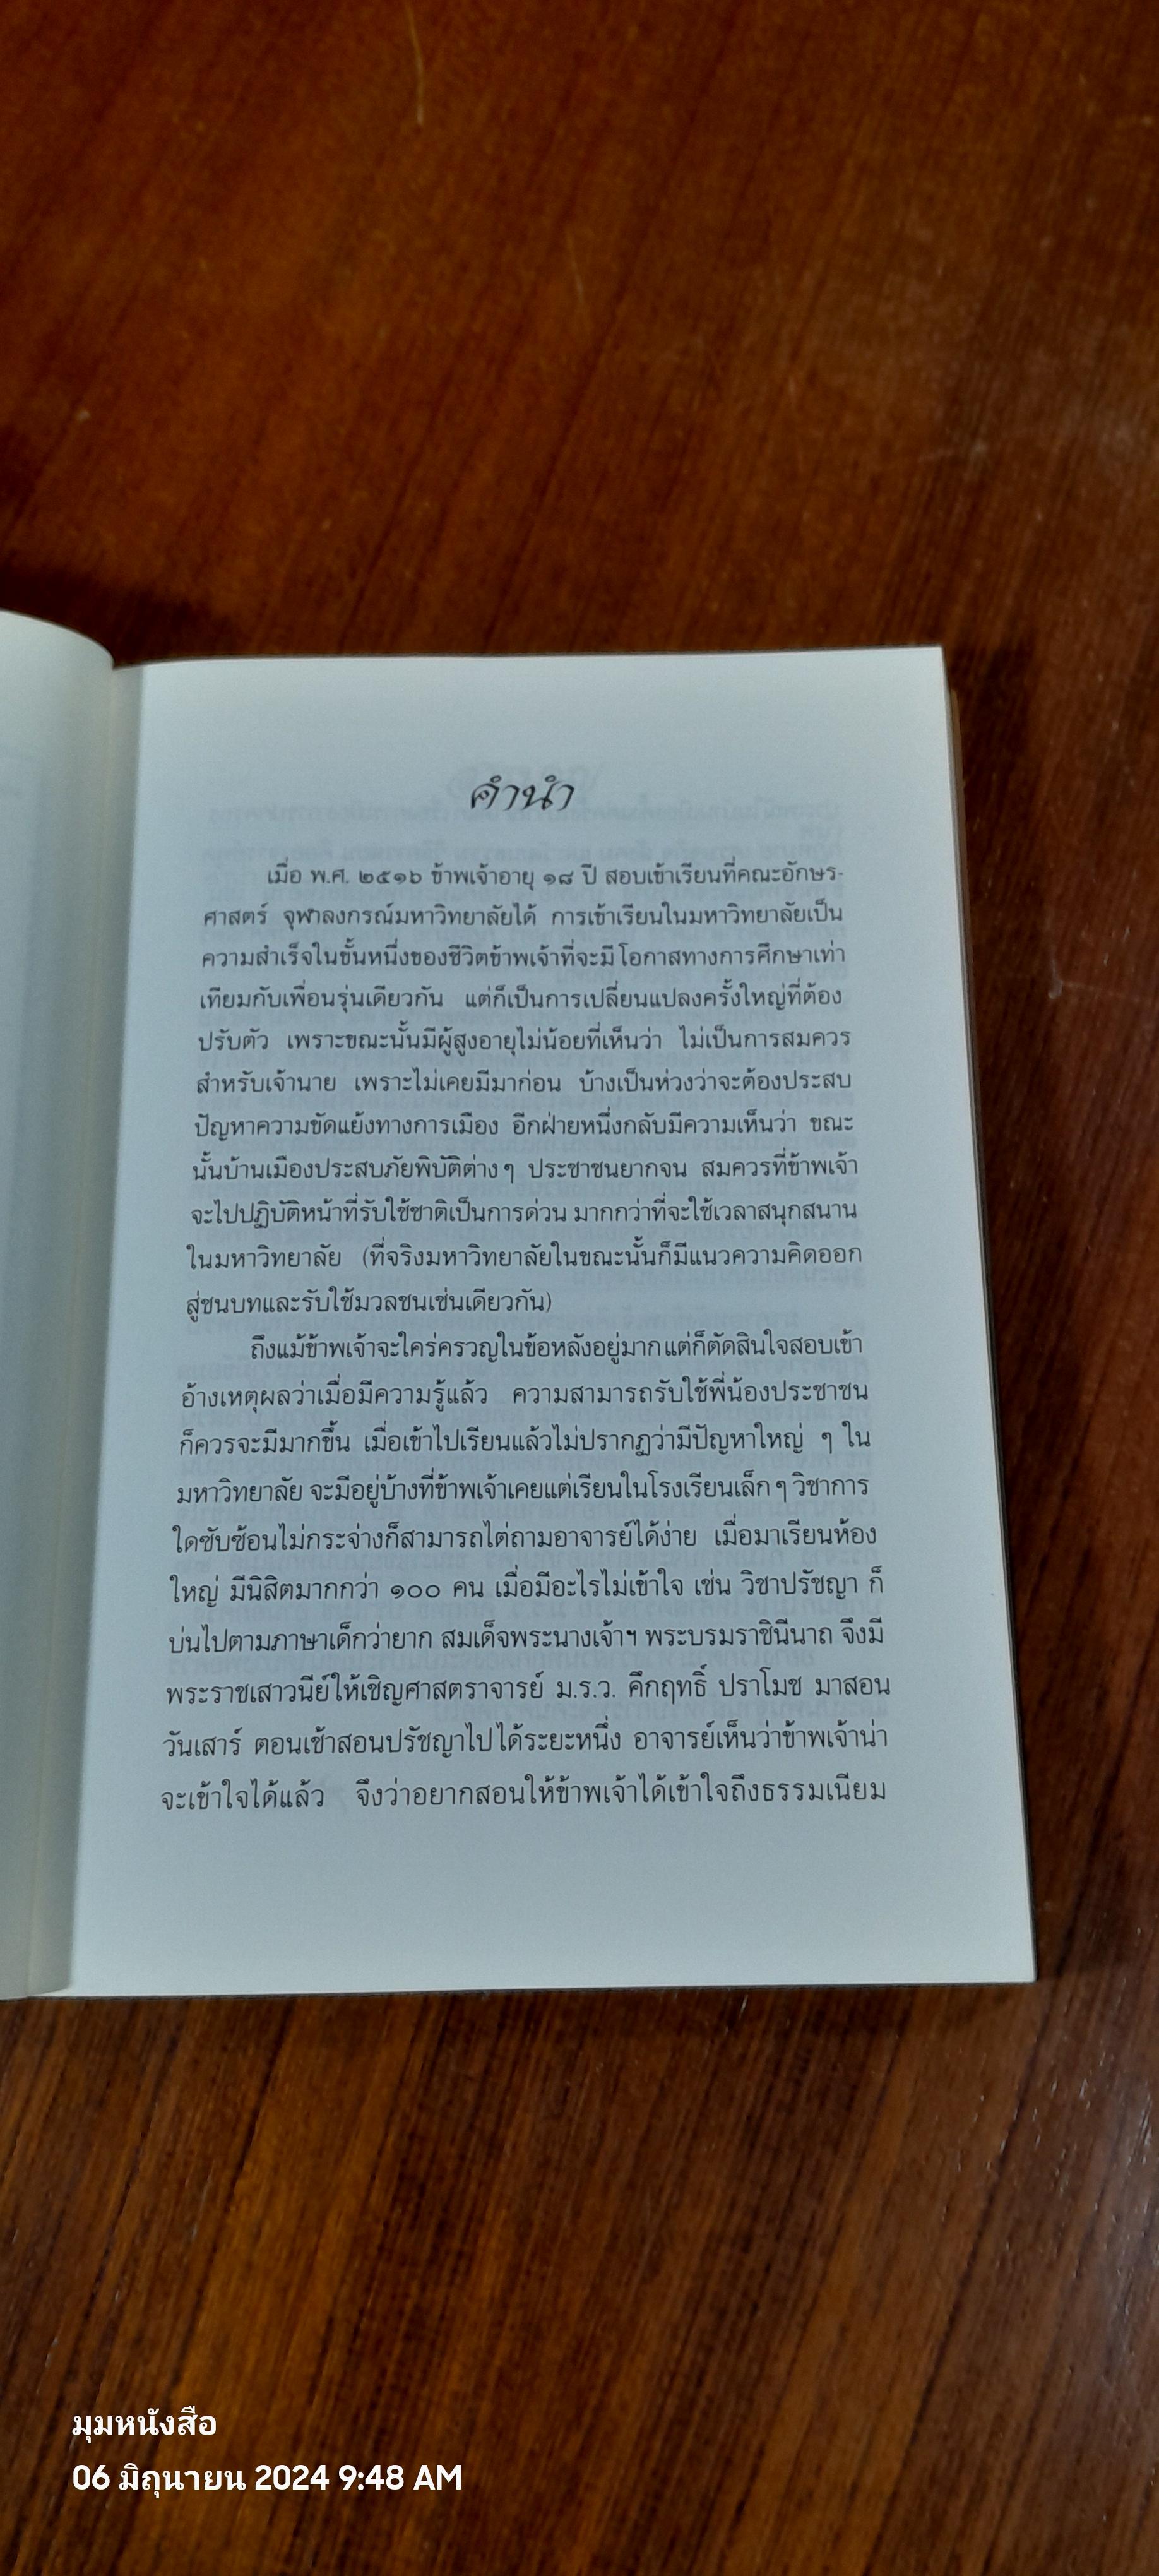 คำนำ
เมื่อ พ.ศ. ๒๕๑๖ ข้าพเจ้าอายุ ๑๘ ปี สอบเข้าเรียนที่คณะอักษร-
ศาสตร์ จุฬาลงกรณ์มหาวิทยาลัยได้ การเข้าเรียนในมหาวิทยาลัยเป็น
ความสำเร็จในขั้นหนึ่งของชีวิตข้าพเจ้าที่จะมีโอกาสทางการศึกษาเท่า
เทียมกับเพื่อนรุ่นเดียวกัน แต่ก็เป็นการเปลี่ยนแปลงครั้งใหญ่ที่ต้อง
ปรับตัว เพราะขณะนั้นมีผู้สูงอายุไม่น้อยที่เห็นว่า ไม่เป็นการสมควร
สำหรับเจ้านาย เพราะไม่เคยมีมาก่อน บ้างเป็นห่วงว่าจะต้องประสบ
ปัญหาความขัดแย้งทางการเมือง อีกฝ่ายหนึ่งกลับมีความเห็นว่า ขณะ
นั้นบ้านเมืองประสบภัยพิบัติต่างๆ ประชาชนยากจน สมควรที่ข้าพเจ้า
จะไปปฏิบัติหน้าที่รับใช้ชาติเป็นการด่วน มากกว่าที่จะใช้เวลาสนุกสนาน
ในมหาวิทยาลัย (ที่จริงมหาวิทยาลัยในขณะนั้นก็มีแนวความคิดออก
สู่ชนบทและรับใช้มวลชนเช่นเดียวกัน)
ถึงแม้ข้าพเจ้าจะใคร่ครวญในข้อหลังอยู่มากแต่ก็ตัดสินใจสอบเข้า
อ้างเหตุผลว่าเมื่อมีความรู้แล้ว ความสามารถรับใช้พี่น้องประชาชน
ก็ควรจะมีมากขึ้น เมื่อเข้าไปเรียนแล้วไม่ปรากฏว่ามีปัญหาใหญ่ ๆ ใน
มหาวิทยาลัย จะมีอยู่บ้างที่ข้าพเจ้าเคยแต่เรียนในโรงเรียนเล็กๆ วิชาการ
ใดซับซ้อนไม่กระจ่างก็สามารถไต่ถามอาจารย์ได้ง่าย เมื่อมาเรียนห้อง
ใหญ่ มีนิสิตมากกว่า ๑๐๐ คน เมื่อมีอะไรไม่เข้าใจ เช่น วิชาปรัชญา ก็
บ่นไปตามภาษาเด็กว่ายาก สมเด็จพระนางเจ้าฯ พระบรมราชินีนาถ จึงมี
พระราชเสาวนีย์ให้เชิญศาสตราจารย์ ม.ร.ว. คึกฤทธิ์ ปราโมช มาสอน
วันเสาร์ ตอนเช้าสอนปรัชญาไปได้ระยะหนึ่ง อาจารย์เห็นว่าข้าพเจ้าน่า
จะเข้าใจได้แล้ว จึงว่าอยากสอนให้ข้าพเจ้าได้เข้าใจถึงธรรมเนียม
มุมหนังสือ
06 มิถุนายน 2024 9:48 AM